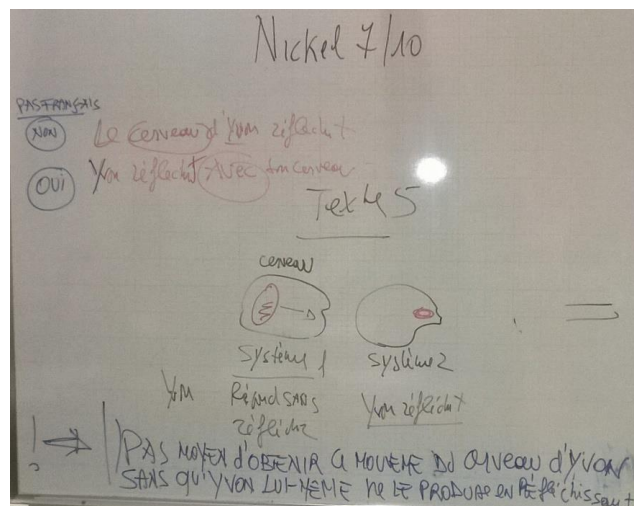 Nickel 7/10
PAS FRANÇAIS
NON Le cerveau d'Yvon réfléchit
OUI Yvon réfléchit AVEC son cerveau
Texte 5
cerveau
Système 1 Système 2
Yvon Répond SANS réfléchir Yvon réfléchit
! PAS MOYEN d'OBTENIR CE MOUVEME DU CERVEAU d'YVON
? SANS QU'YVON LUI-MÊME NE LE PRODUISE EN RÉFléchissant